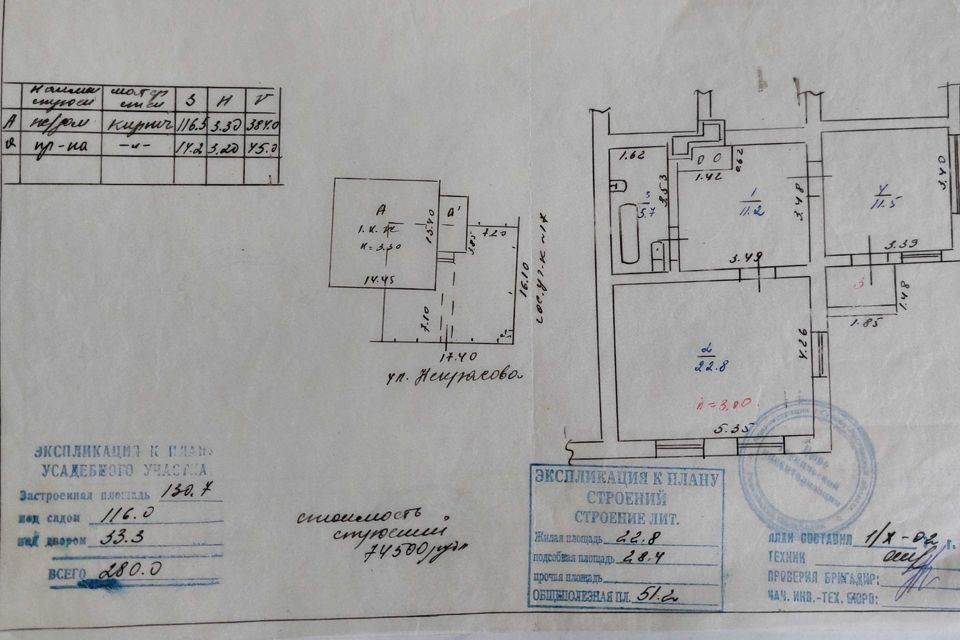 S H V
А кирпич 116.5 3.30 384.0
пр-ка -"- 14.2 3.20 45.0
А
h=3.30
14.45
15.40
а'
3.85
7.20
16.10
7.10
17.40
ул. Некрасова
1.62
3.53
3
5.7
0.62
1.42
1
11.2
3.48
3.49
4
11.5
3.40
3.39
3
1.48
1.85
2
22.8
4.26
h=3.00
5.35
ЭКСПЛИКАЦИЯ К ПЛАНУ
УСАДЕБНОГО УЧАСТКА
Застроенная площадь 130.7
под садом 116.0
под двором 33.3
ВСЕГО 280.0
стоимость
строений
74500 рубл
ЭКСПЛИКАЦИЯ К ПЛАНУ
СТРОЕНИЙ
СТРОЕНИЕ ЛИТ.
Жилая площадь 22.8
подсобная площадь 28.4
прочия площадь
ОБЩЕПОЛЕЗНАЯ ПЛ. 51.2
СОСТАВИЛ 1/X-02 г.
ТЕХНИК
ПРОВЕРИЛ БРИГАДИР:
НАЧ. ИНВ.-ТЕХ. БЮРО: